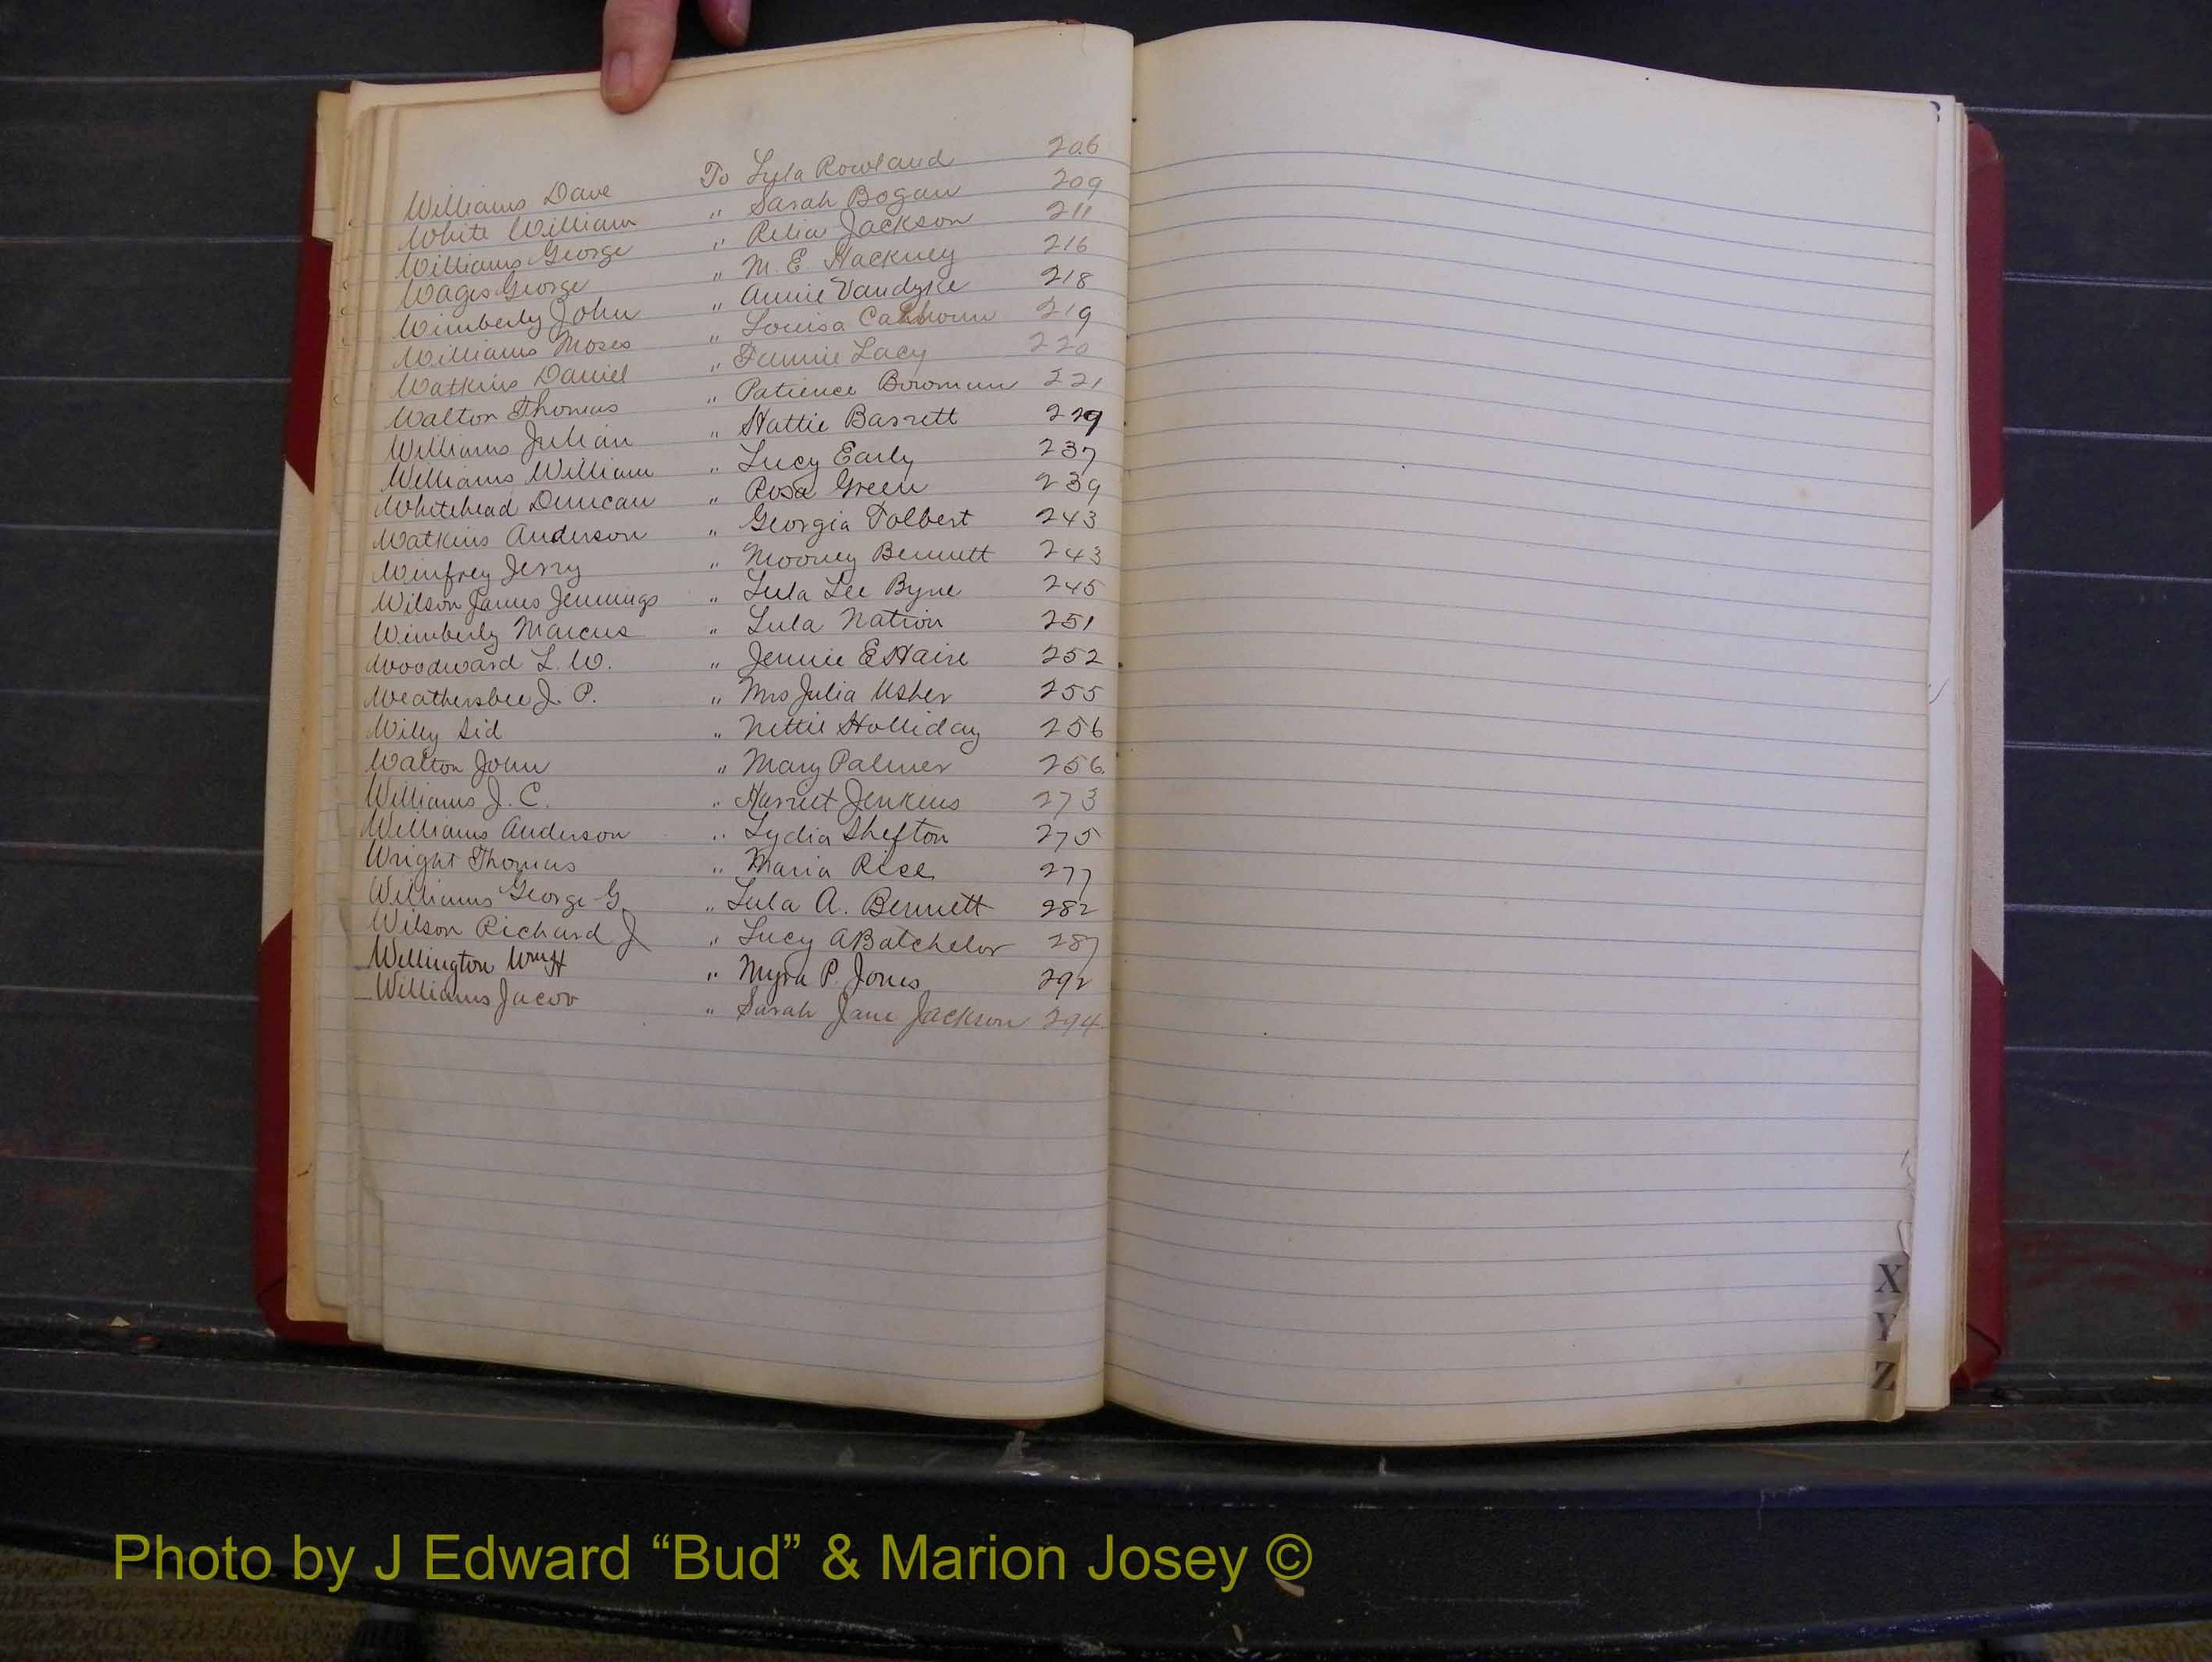 Williams Dave To Lula Rowland 206
White William " Sarah Bogan 209
Williams George " Rilia Jackson 211
Wages George " M. E. Hackney 216
Wimberly John " Annie Vandyke 218
Williams Moses " Louisa Calhoun 219
Watkins Daniel " Fannie Lacy 220
Walton Thomas " Patience Bowman 221
Williams Julian " Hattie Barrett 229
Williams William " Lucy Early 237
Whitehead Duncan " Rosa Green 239
Watkins Anderson " Georgia Tolbert 243
Winfrey Jerry " Mooney Bennett 243
Wilson James Jennings " Lula Lee Byne 245
Wimberly Marcus " Lula Nation 251
Woodward L. W. " Jennie E Haire 252
Weathersbee J. P. " Mrs Julia Usher 255
Willy Sid " Nettie Holliday 256
Walton John " Mary Palmer 256
Williams J. C. " Harriet Jenkins 273
Williams Anderson " Lydia Shefton 275
Wright Thomas " Maria Rice 277
Williams George G " Lula A. Bennett 282
Wilson Richard J " Lucy A Batchelor 287
Wellington " Myra P. Jones 292
Williams Jacob " Sarah Jane Jackson 294
X
Y
Z
Photo by J Edward “Bud” & Marion Josey ©